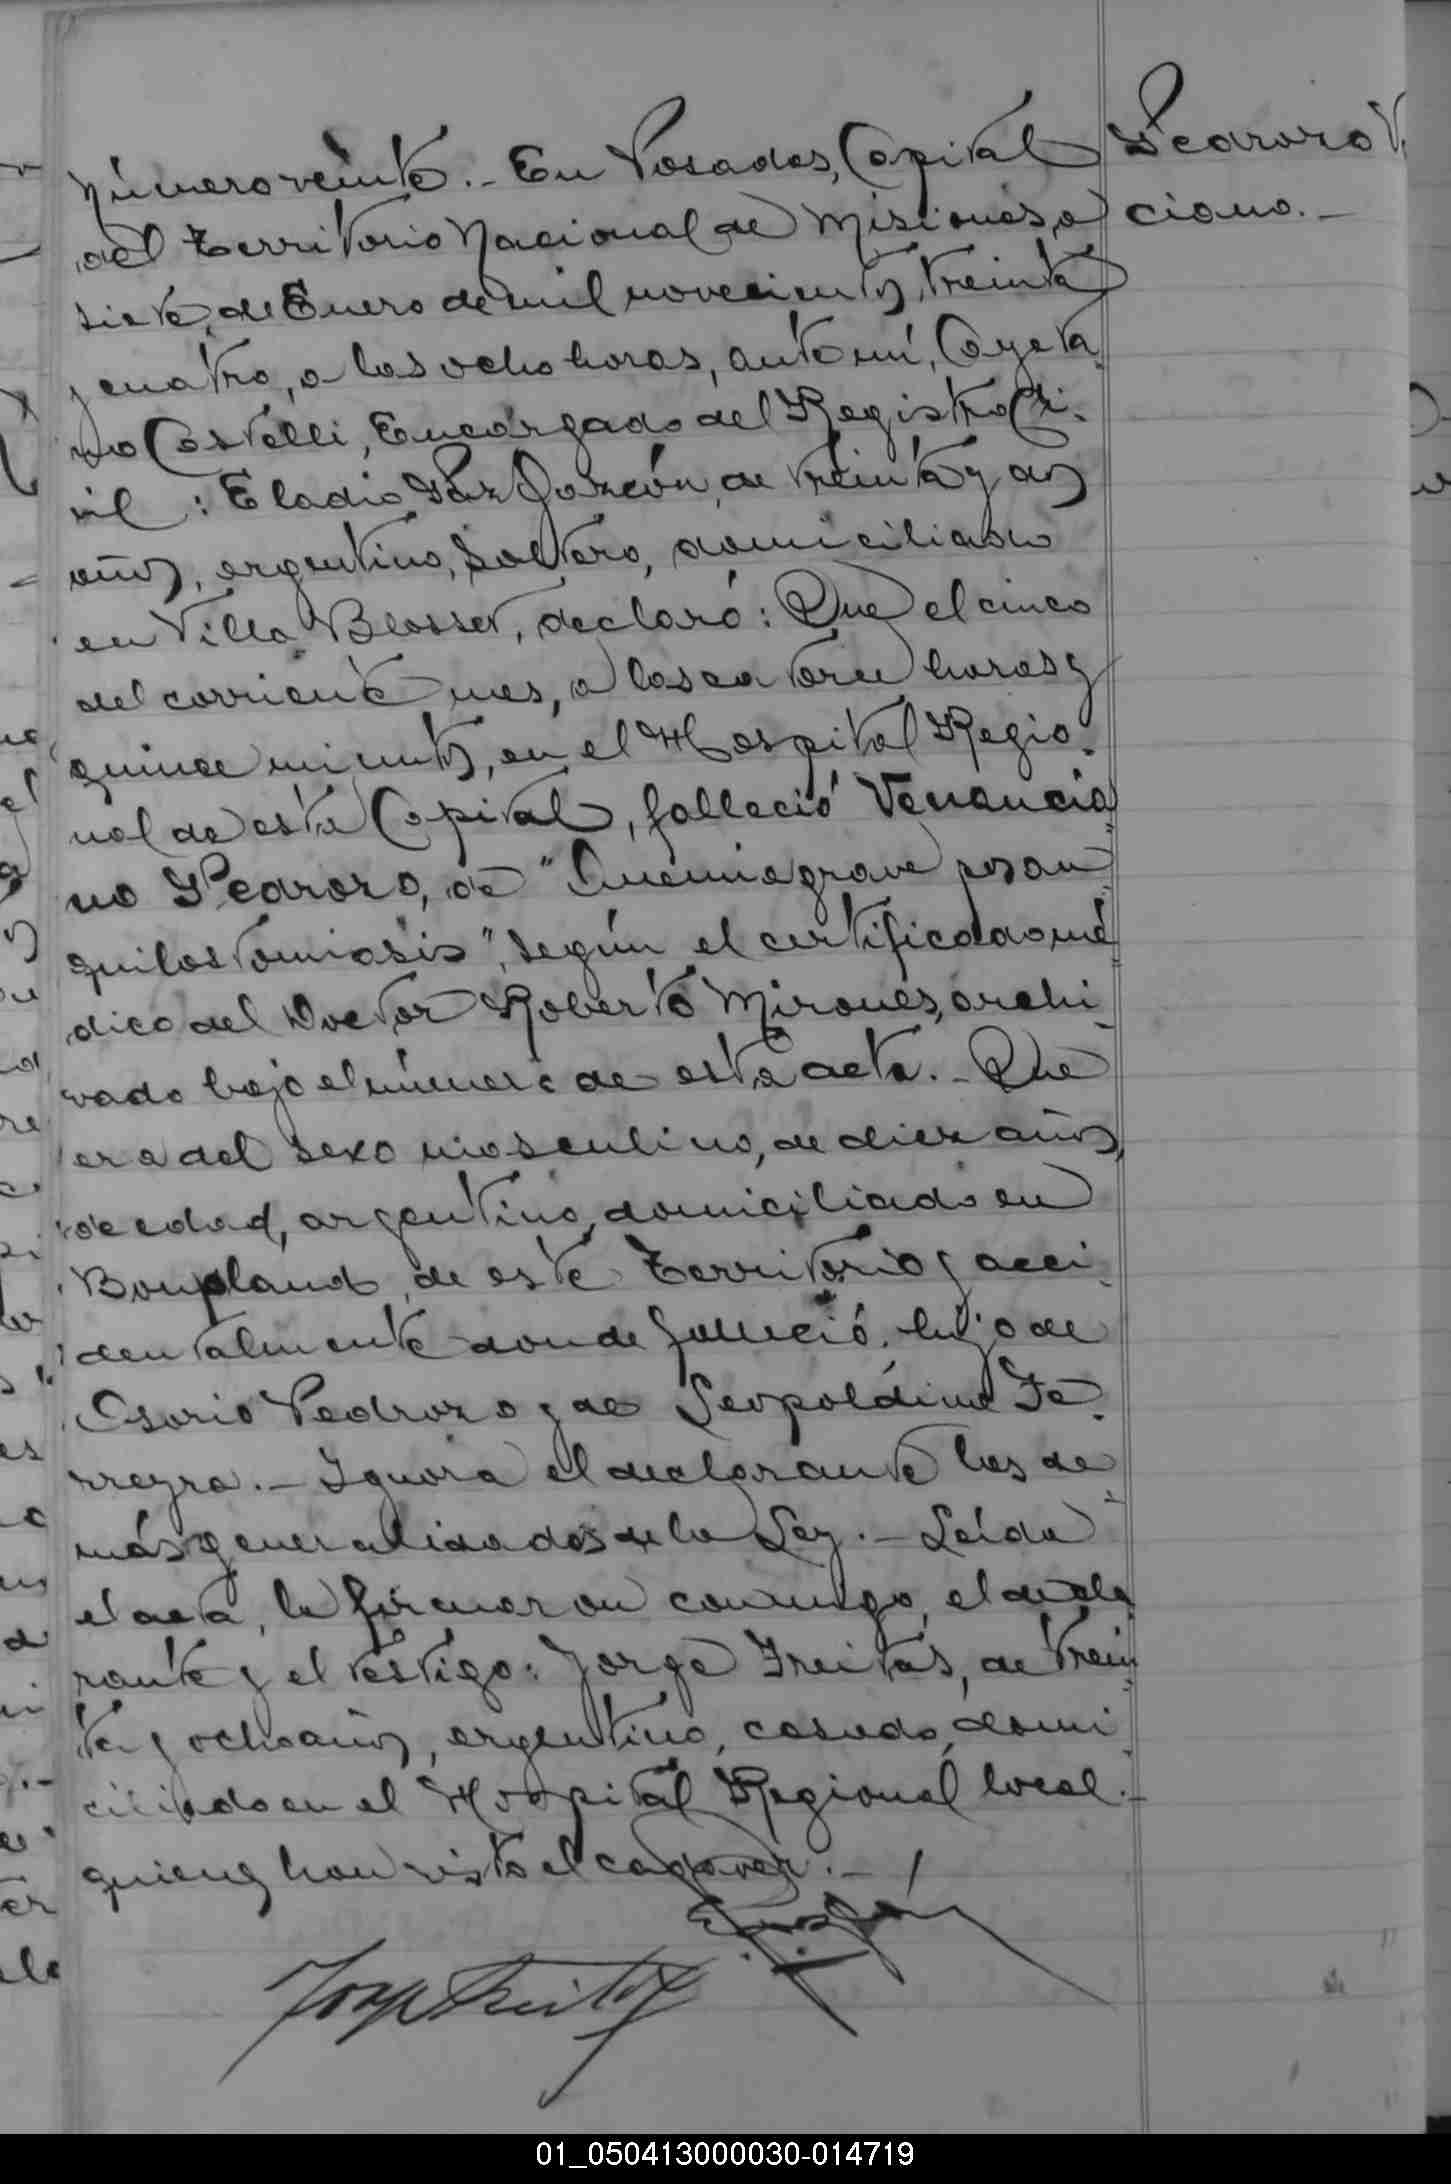 Número veinte.- En Posadas, Capital
Pedrozo V.
del Territorio Nacional de Misiones, a
ciano.-
siete de Enero de mil novecientos treinta
y cuatro, a las ocho horas, ante mí, Cayeta
no Castelli, Encargado del Registro Ci-
vil: Eladio Paz Garzón, de treinta y dos
años, argentino, soltero, domiciliado
en Villa Blosset, declaró: Que el cinco
del corriente mes, a las catorce horas y
quince minutos, en el Hospital Regio-
nal de esta Capital, falleció Venancia
no Pedrozo, de "Anemia grave por an
quilostomiasis", según el certificado mé
dico del Doctor Roberto Mirones, archi
vado bajo el número de esta acta.- Que
era del sexo masculino, de diez años,
de edad, argentino, domiciliado en
Bonpland, de este Territorio y acci
dentalmente donde falleció, hijo de
Osorio Pedrozo y de Leopoldina Fe-
rreyra.- Ignora el declarante las de
más generalidades de la Ley.- Leída
el acta, la firmaron conmigo, el decla
rante y el testigo: Jorge Freitas, de trein
ta y ocho años, argentino, casado, domi
ciliado en el Hospital Regional local.-
quienes han visto el cadáver.-
Jorge Freitas
01_050413000030-014719